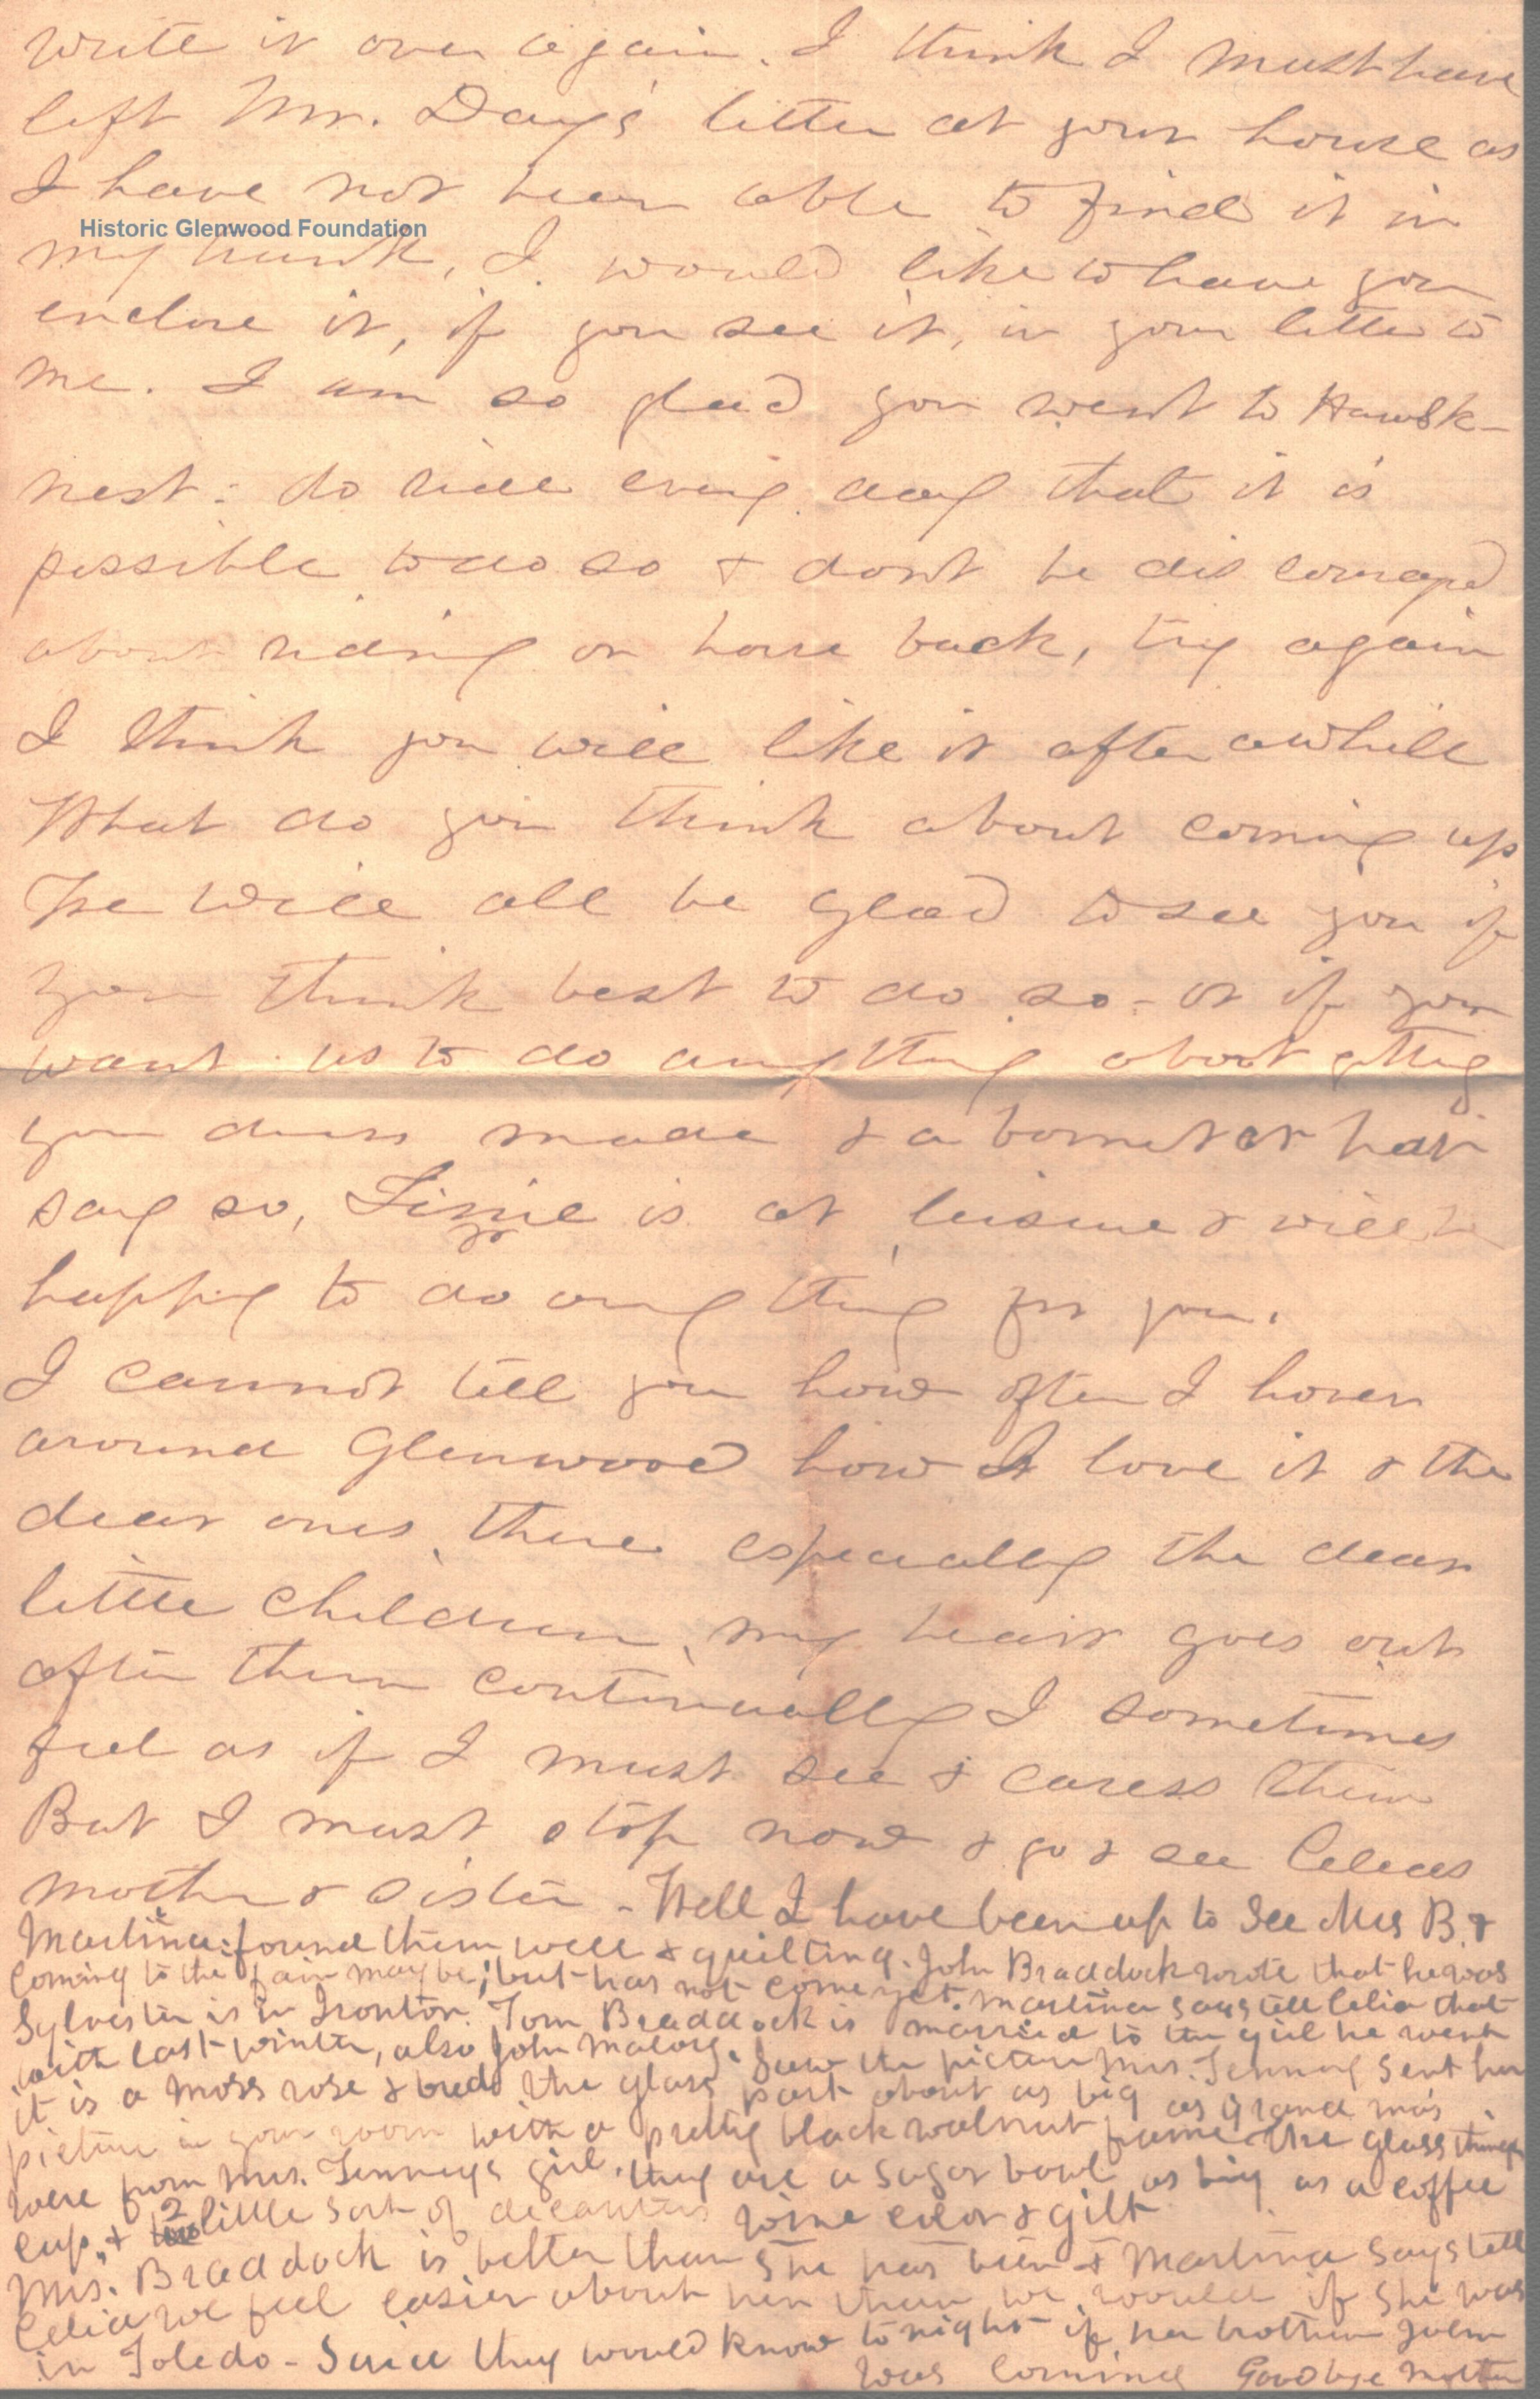 write it over again. I think I must have
left Mr. Day's letter at your house as
I have not been able to find it in
Historic Glenwood Foundation
my trunk, I would like to have you
enclose it, if you see it, in your letter to
me. I am so glad you went to Hawsk-
nest: do ride every day that it is
possible to do so & dont be dis couraged
about riding on horse back, try again
I think you will like it after awhile
What do you think about coming up
We will all be glad to see you if
you think best to do so - or if you
want us to do any thing about getting
your dress made & a bonnet or hat
say so, Lizzie is at leisure & will be
happy to do any thing for you.
I cannot tell you how often I hover
around Glenwood how I love it & the
dear ones there especially the dear
little children, my heart goes out
after them continually I sometimes
feel as if I must see & caress them
But I must stop now & go & see Celias
mother & sister - Well I have been up to see Mrs B. &
Martina: found them well & quilting. John Braddock wrote that he was
coming to the fair may be; but has not come yet. Martina says tell Celia that
Sylvester is in Ironton. Tom Braddock is married to the girl he went
with last winter, also John Malory. Saw the picture Mrs. Tenney sent her
it is a moss rose & buds the glass part about as big as grand ma's
picture in your room with a pretty black walnut frame the glass things
were from Mrs. Tenneys girl. they are a sugar bowl as big as a coffee
cup, & 2 little sort of decanters wine color & gilt
Mrs. Braddock is better than she has been & Martina says tell
Celia we feel easier about her than we would if she was
in Toledo - Susie they would know to night if her brother John
was coming Goodbye Mother